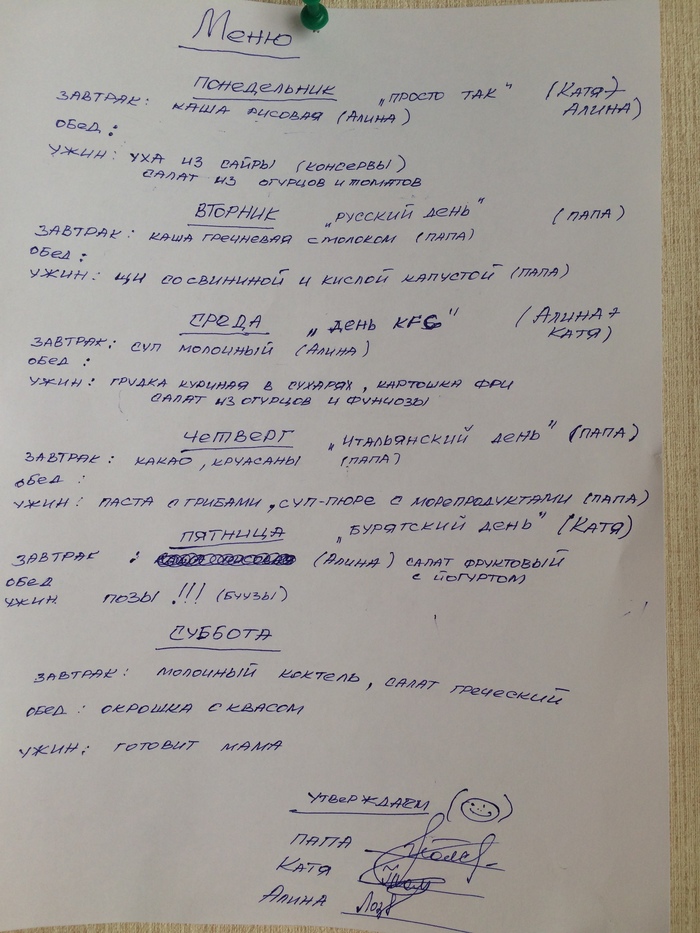 Меню
ПОНЕДЕЛЬНИК „ПРОСТО ТАК" (КАТЯ+
ЗАВТРАК: КАША РИСОВАЯ (АЛИНА) АЛИНА)
ОБЕД:
УЖИН: УХА ИЗ САЙРЫ (КОНСЕРВЫ)
САЛАТ ИЗ ОГУРЦОВ И ТОМАТОВ
ВТОРНИК „РУССКИЙ ДЕНЬ" (ПАПА)
ЗАВТРАК: КАША ГРЕЧНЕВАЯ С МОЛОКОМ (ПАПА)
ОБЕД:
УЖИН: ЩИ СО СВИНИНОЙ И КИСЛОЙ КАПУСТОЙ (ПАПА)
СРЕДА „ДЕНЬ KFC" (АЛИНА+
ЗАВТРАК: СУП МОЛОЧНЫЙ (АЛИНА) КАТЯ)
ОБЕД:
УЖИН: ГРУДКА КУРИНАЯ В СУХАРЯХ, КАРТОШКА ФРИ
САЛАТ ИЗ ОГУРЦОВ И ФУНЧОЗЫ
ЧЕТВЕРГ „ИТАЛЬЯНСКИЙ ДЕНЬ" (ПАПА)
ЗАВТРАК: КАКАО, КРУАСАНЫ (ПАПА)
ОБЕД:
УЖИН: ПАСТА С ГРИБАМИ, СУП-ПЮРЕ С МОРЕПРОДУКТАМИ (ПАПА)
ПЯТНИЦА „БУРЯТСКИЙ ДЕНЬ" (КАТЯ)
ЗАВТРАК: (АЛИНА) САЛАТ ФРУКТОВЫЙ
С ЙОГУРТОМ
ОБЕД
УЖИН ПОЗЫ !!! (БУУЗЫ)
СУББОТА
ЗАВТРАК: МОЛОЧНЫЙ КОКТЕЛЬ, САЛАТ ГРЕЧЕСКИЙ
ОБЕД: ОКРОШКА С КВАСОМ
УЖИН: ГОТОВИТ МАМА
УТВЕРЖДАЕМ
ПАПА
КАТЯ
АЛИНА